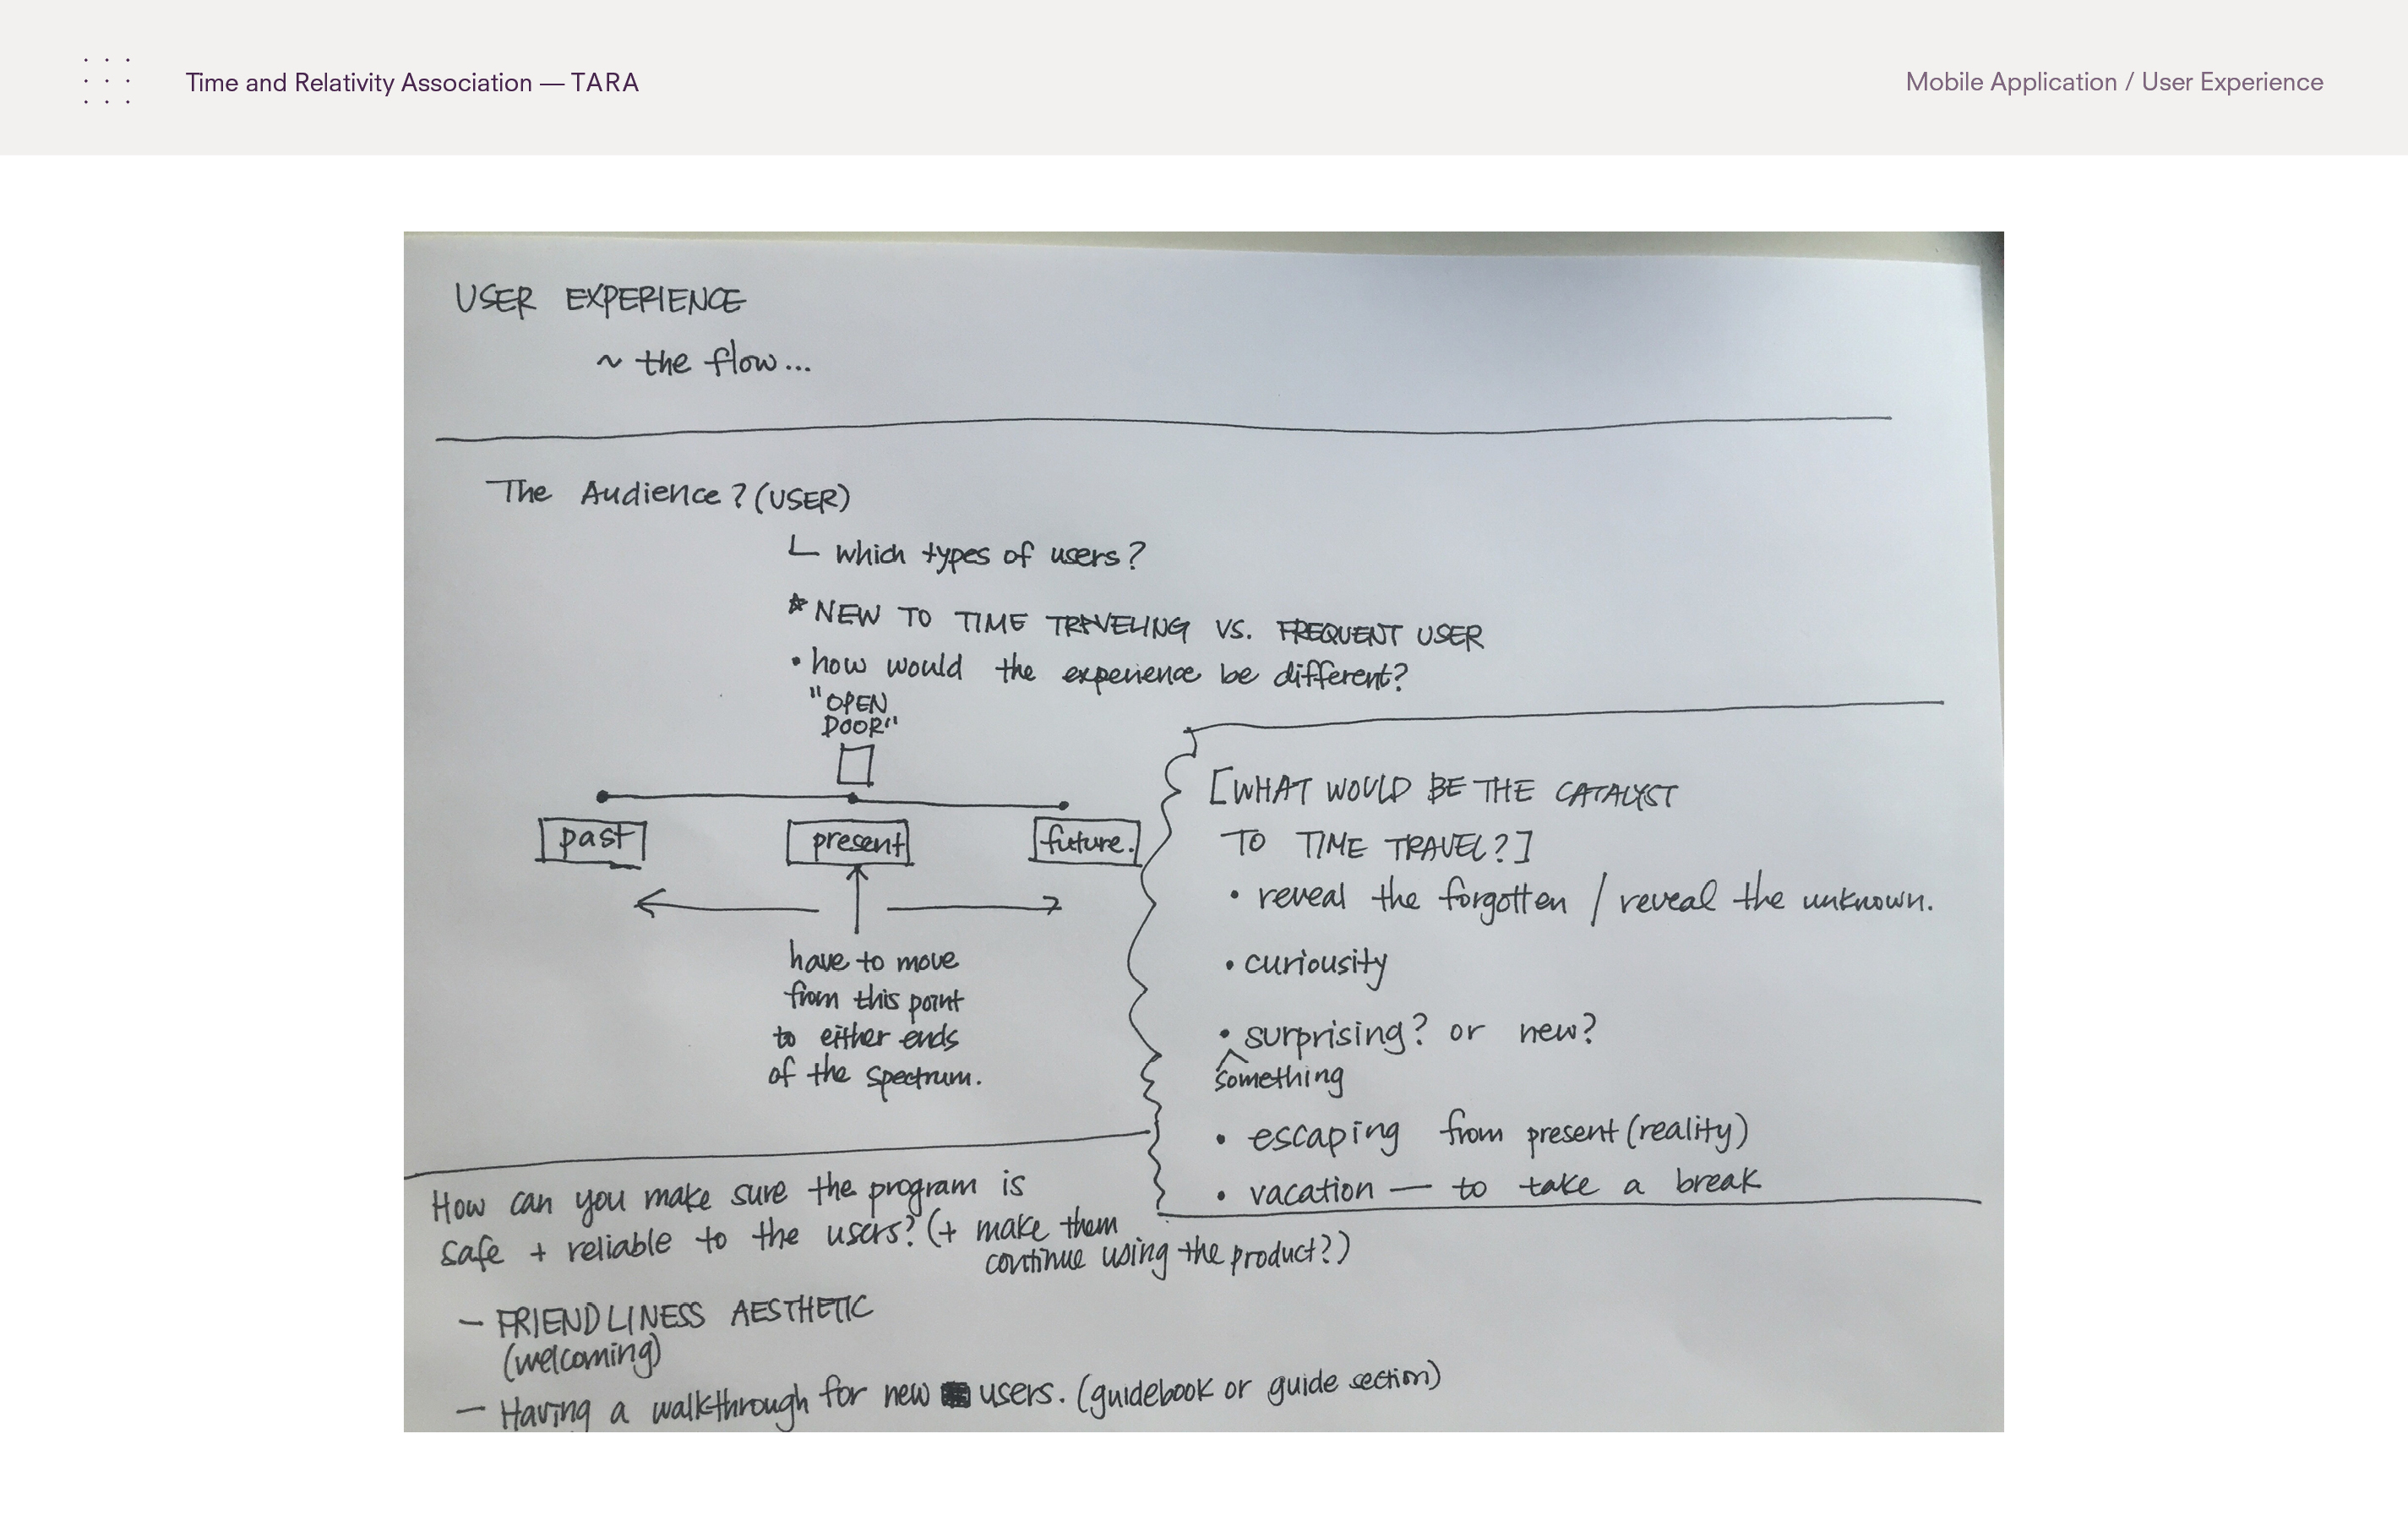 Time and Relativity Association — TARA
Mobile Application / User Experience
USER EXPERIENCE
~ the flow...
The Audience? (USER)
which types of users?
* NEW TO TIME TRAVELING VS. FREQUENT USER
• how would the experience be different?
"OPEN
DOOR"
past
present
future.
have to move
from this point
to either ends
of the spectrum.
[WHAT WOULD BE THE CATALYST
TO TIME TRAVEL?]
• reveal the forgotten / reveal the unknown.
• curiousity
• surprising? or new?
something
• escaping from present (reality)
• vacation — to take a break
How can you make sure the program is
safe + reliable to the users? (+ make them
continue using the product?)
— FRIENDLINESS AESTHETIC
(welcoming)
— Having a walkthrough for new users. (guidebook or guide section)